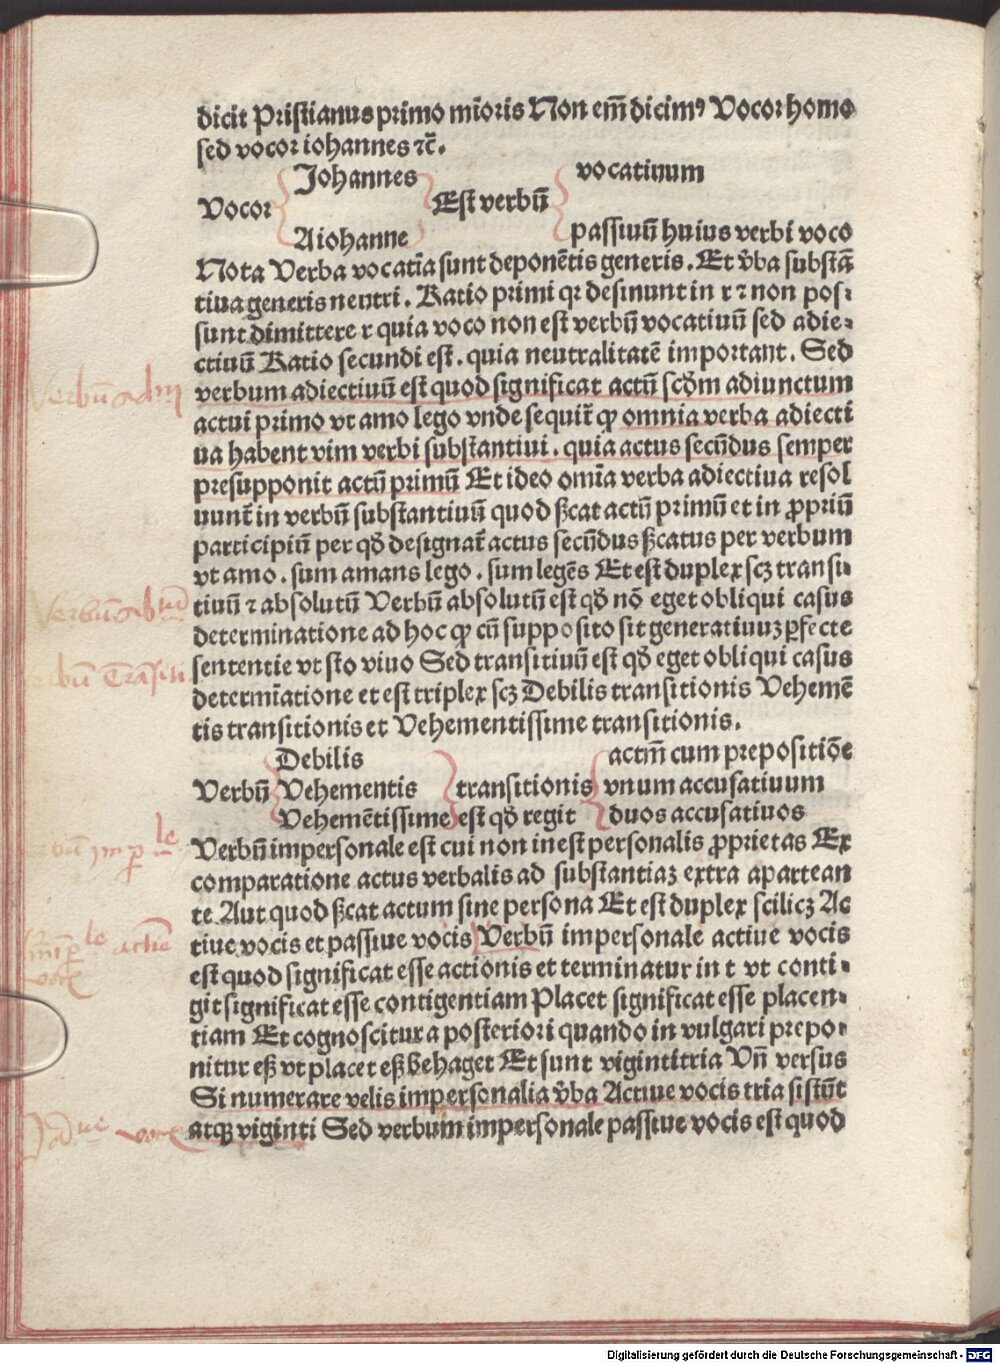 dicit Pristianus primo mīoris Non em̄ dicimꝰ Vocor homo
sed vocor iohannes ⁊c̄.
Johannes vocatiuum
Vocor Est verbū
A iohanne passiuū huius verbi voco
Nota Verba vocatīa sunt deponētis generis. Et v̄ba substā
tiua generis neutri. Ratio primi qꝛ desinunt in r ⁊ non pos⸗
sunt dimittere r quia voco non est verbū vocatiuū sed adie⸗
ctiuū Ratio secundi est. quia neutralitatē important. Sed
verbum adiectiuū est quod significat actū scḋm adiunctum
actui primo vt amo lego vnde sequit̄ ꝙ omnia verba adiecti
ua habent vim verbi substantiui. quia actus secūdus semper
presupponit actū primū Et ideo omīa verba adiectiua resol
uunt̄ in verbū substantiuū quod ßcat actū primū et in ꝓpriū
participiū per qḋ designat̄ actus secūdus ßcatus per verbum
vt amo. sum amans lego. sum legēs Et est duplex scꝫ transi⸗
tiuū ⁊ absolutū Verbū absolutū est qḋ nō eget obliqui casus
determinatione ad hoc ꝙ cū supposito sit generatiuuꝫ ꝑfecte
sententie vt sto viuo Sed transitiuū est qḋ eget obliqui casus
determīatione et est triplex scꝫ Debilis transitionis Vehemē
tis transitionis et Vehementissime transitionis.
Debilis actm̄ cum prepositiōe
Verbū Vehementis transitionis vnum accusatiuum
Vehemētissime est qḋ regit duos accusatiuos
Verbū impersonale est cui non inest personalis ꝓprietas Ex
comparatione actus verbalis ad substantiaꝫ extra apartean
te Aut quod ßcat actum sine persona Et est duplex scilicꝫ Ac
tiue vocis et passiue vocis Verbū impersonale actiue vocis
est quod significat esse actionis et terminatur in t vt conti⸗
git significat esse contigentiam Placet significat esse placen⸗
tiam Et cognoscitur a posteriori quando in vulgari prepo⸗
nitur eß vt placet eß behaget Et sunt vigintitria Vn̄ versus
Si numerare velis impersonalia v̄ba Actiue vocis tria sistūt
atqꝫ viginti Sed verbum impersonale passiue vocis est quod
Digitalisierung gefördert durch die Deutsche Forschungsgemeinschaft - DFG